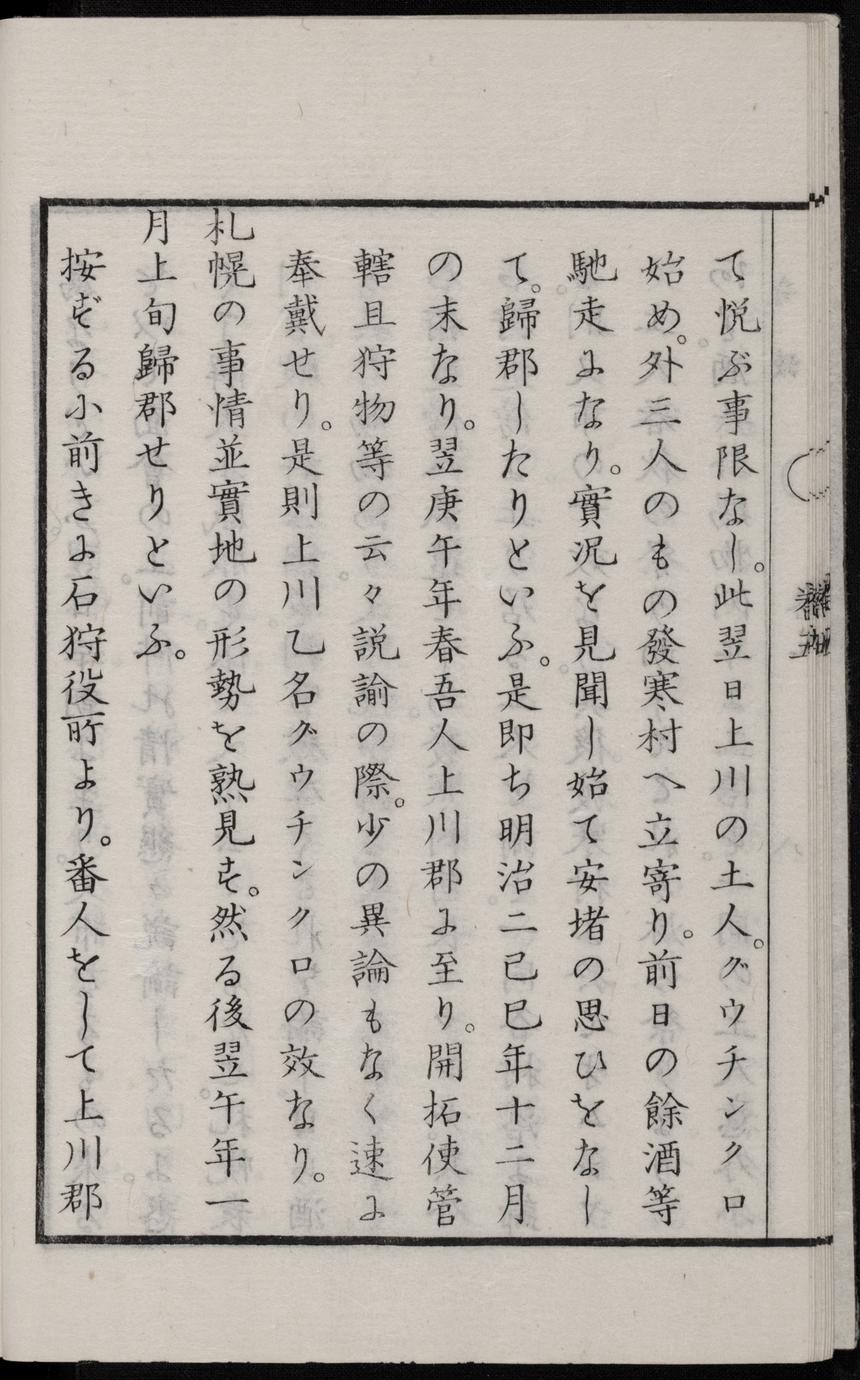 て悦ぶ事限なし。此翌日上川の土人。グウチンクロ
始め。外三人のもの發寒村へ立寄り。前日の餘酒等
馳走になり。實况を見聞し始て安堵の思ひをなし
て。歸郡したりといふ。是即ち明治二己巳年十二月
の末なり。翌庚午年春吾人上川郡に至り。開拓使管
轄且狩物等の云々説諭の際。少の異論もなく速に
奉戴せり。是則上川乙名グウチンクロの效なり。
札幌の事情並實地の形勢を熟見す。然る後翌午年一
月上旬歸郡せりといふ。
按ずる小前きに石狩役所より。番人をして上川郡